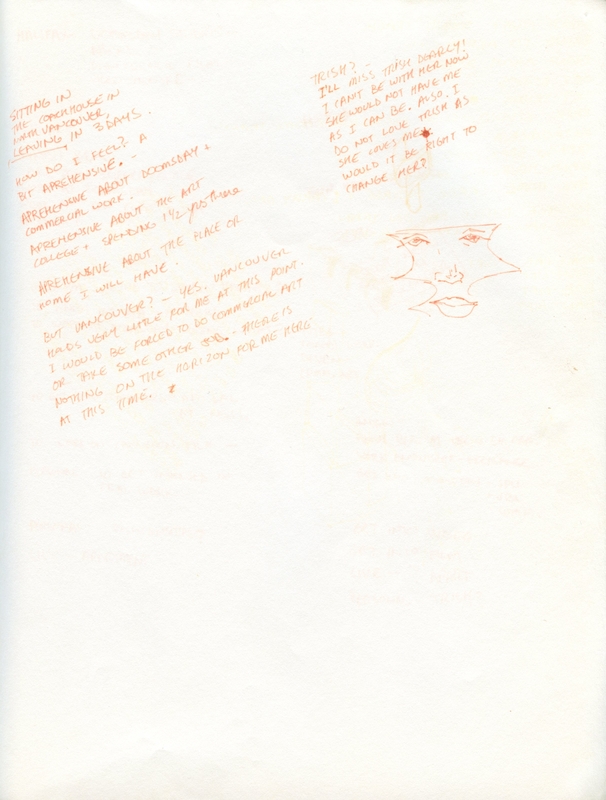 SITTING IN
THE COACHHOUSE IN
NORTH VANCOUVER,
LEAVING IN 3 DAYS.
HOW DO I FEEL? A
BIT APREHENSIVE. -
APREHENSIVE ABOUT DOOMSDAY &
COMMERCIAL WORK.
APREHENSIVE ABOUT THE ART
COLLEGE + SPENDING 1 1/2 yrs there
APREHENSIVE ABOUT THE PLACE OR
HOME I WILL HAVE.
BUT VANCOUVER? - YES. VANCOUVER
HOLDS VERY LITTLE FOR ME AT THIS POINT.
I WOULD BE FORCED TO DO COMMERCIAL ART
OR TAKE SOME OTHER JOB. THERE IS
NOTHING ON THE HORIZON FOR ME HERE
AT THIS TIME.
TRISH? -
I'LL MISS TRISH DEARLY!
I CAN'T BE WITH HER NOW
SHE WOULD NOT HAVE ME
AS I CAN BE. ALSO, I
DO NOT LOVE TRISH AS
SHE LOVES ME
WOULD IT BE RIGHT TO
CHANGE HER?